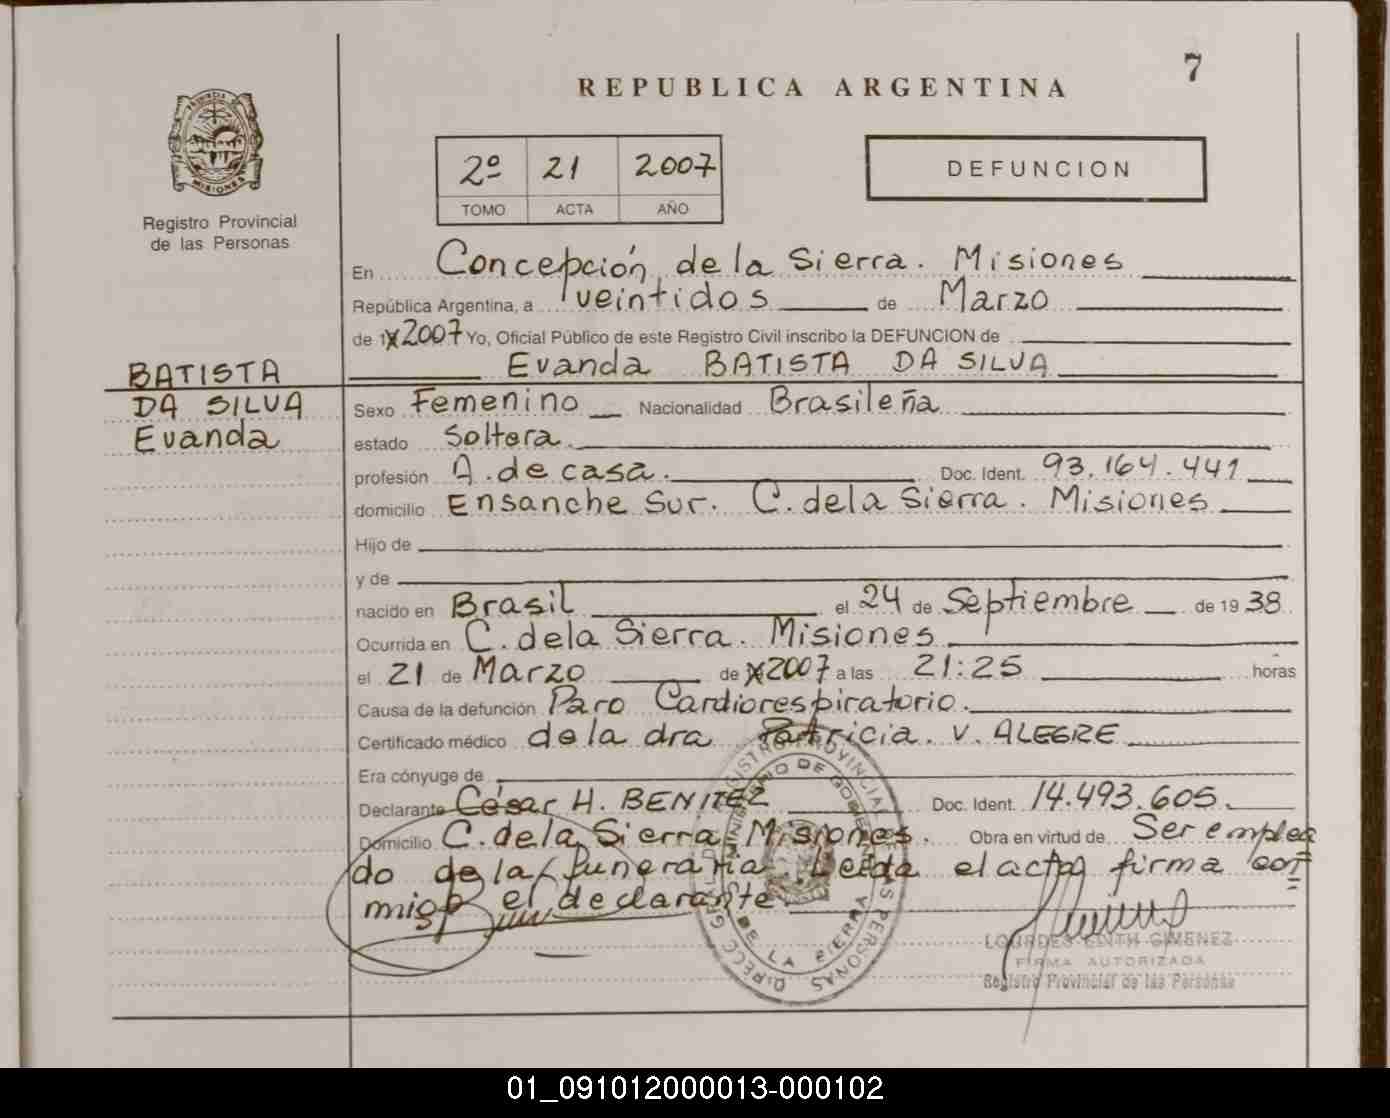 7
REPUBLICA ARGENTINA
MISIONES
Registro Provincial
de las Personas
2º 21 2007
TOMO ACTA AÑO
DEFUNCION
En Concepción de la Sierra. Misiones
República Argentina, a veintidos de Marzo
de 1x2007 Yo, Oficial Público de este Registro Civil inscribo la DEFUNCION de
Evanda BATISTA DA SILVA
BATISTA
DA SILVA
Evanda
Sexo Femenino Nacionalidad Brasileña
estado Soltera.
profesión A. de casa. Doc. Ident. 93.164.441
domicilio Ensanche Sur. C. de la Sierra. Misiones
Hijo de
y de
nacido en Brasil el 24 de Septiembre de 19 38
Ocurrida en C. de la Sierra. Misiones
el 21 de Marzo de x2007 a las 21:25 horas
Causa de la defunción Paro Cardiorespiratorio.
Certificado médico de la dra Patricia. V. ALEGRE
Era cónyuge de
Declarante César H. BENITEZ Doc. Ident. 14.493.605.
Domicilio C. de la Sierra Misiones. Obra en virtud de Ser emplea
do de la funeraria. Leida el acta firma con=
migo el declarante.
LOURDES EDITH GIMENEZ
FIRMA AUTORIZADA
Registro Provincial de las Personas
01_091012000013-000102